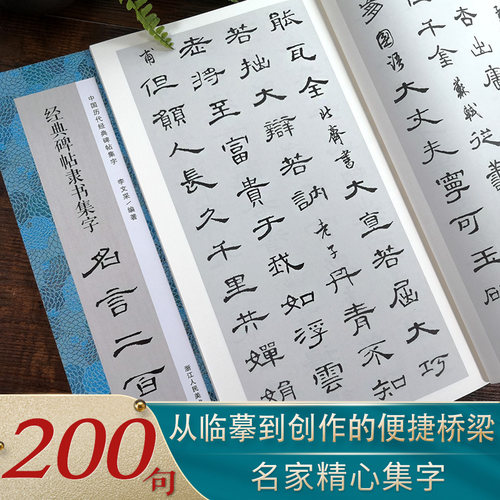 中国历代经典碑帖集字
李文采/编著
经典碑帖隶书集字
名言二百
浙江人民美
千金 蘇軾
國語 大丈夫寧可玉
能瓦全 北齊書 大直若屈大巧
若拙大辯若訥 老子 丹青不知
老將至富貴于我如浮雲
甫 但願人長久千里共嬋娟
200句
从临摹到创作的便捷桥梁
名家精心集字